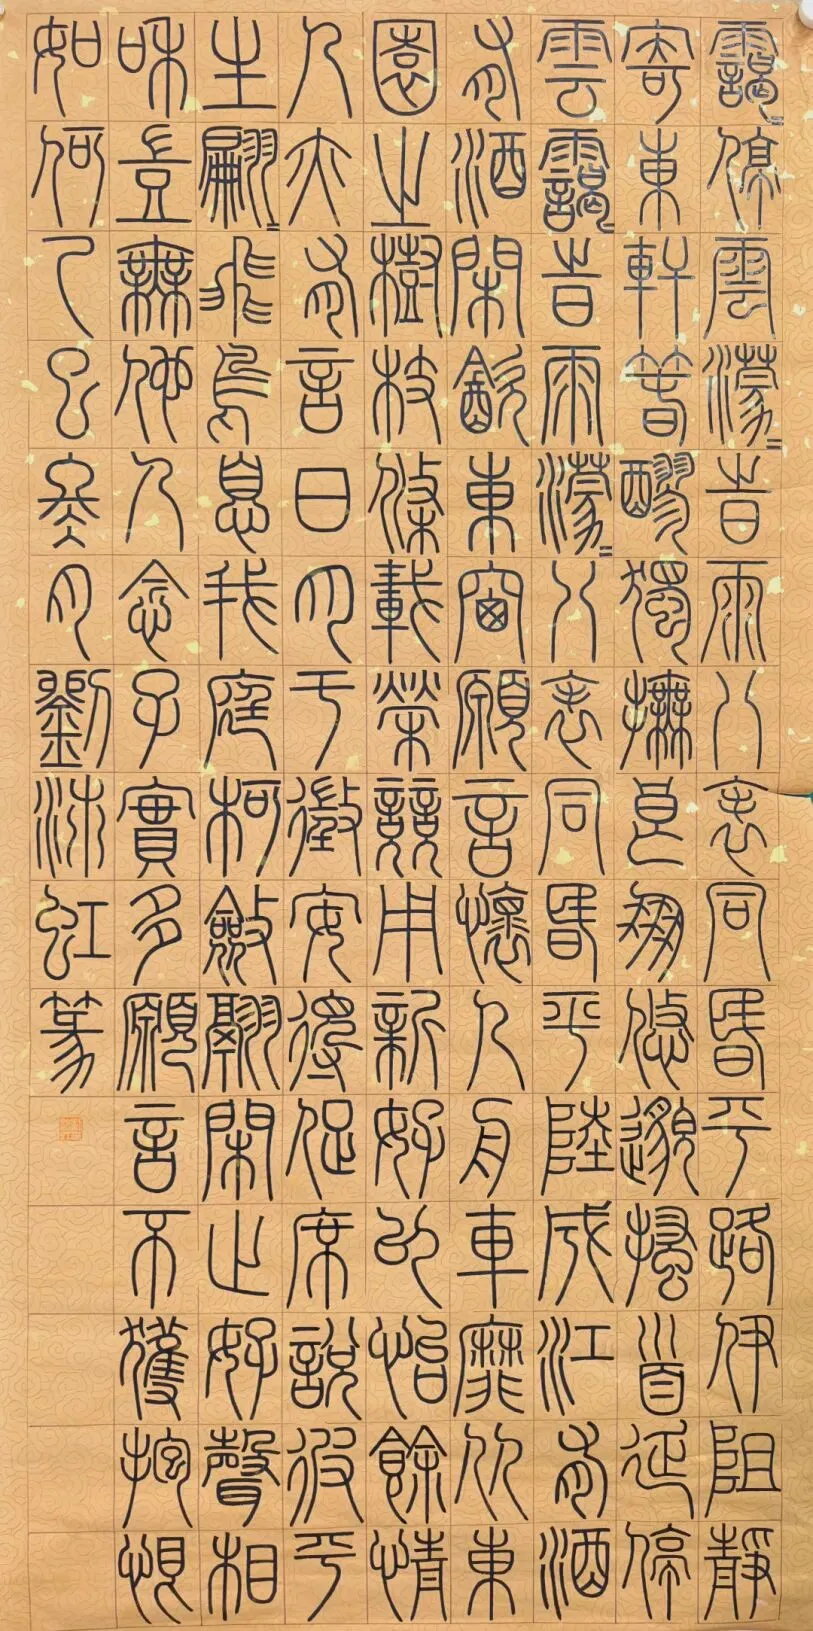 靄〻停雲濛〻時雨八表同昏平路伊阻靜
寄東軒春醪獨撫良朋悠邈搔首延停
雲靄〻時雨濛〻八表同昏平陸成江有酒
有酒閑飲東窗願言懷人舟車靡從東
園之樹枝條載榮競用新好以怡餘情
人亦有言日月于徵安得促席說彼平
生翩〻飛鳥息我庭柯斂翮閑止好聲相
和豈無他人念子實多願言不獲抱恨
如何乙巳癸月劉沛虹篆